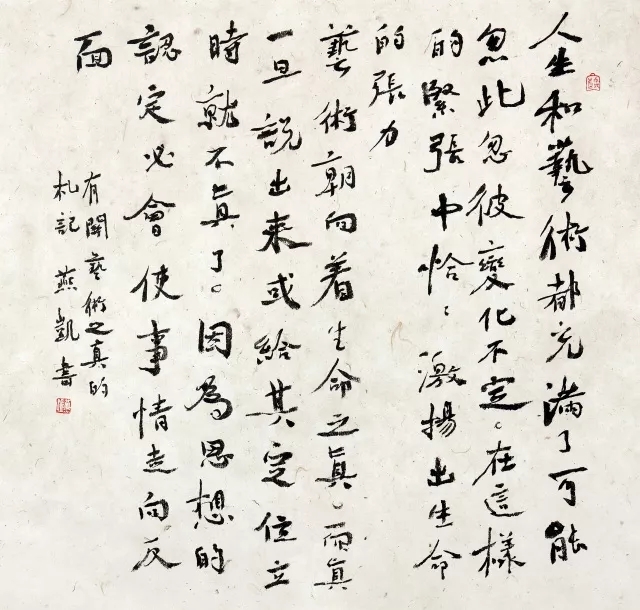 人生和藝術都充滿了可能
忽此忽彼變化不定。在這樣
的緊張中恰恰激揚出生命
的張力
藝術朝向着生命之真。而真
一旦說出来或給其定位立
時就不真了。因為思想的
認定必會使事情走向反
面
有關藝術之真的
札記 燕凱書